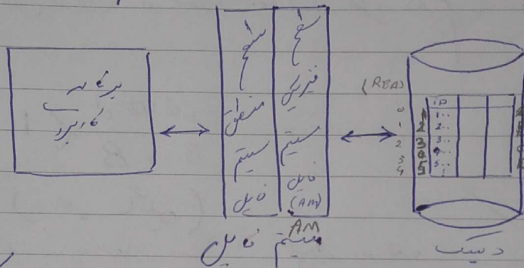 برنامه
کاربرد
سطح
منطقی
سیستم
فایل
سطح
فیزیکی
سیستم
فایل
(AM)
AM
سیستم فایل
(RBA)
0
1
2
3
4
1
2
3
4
5
ID
1..
2..
3..
5..
دیسک